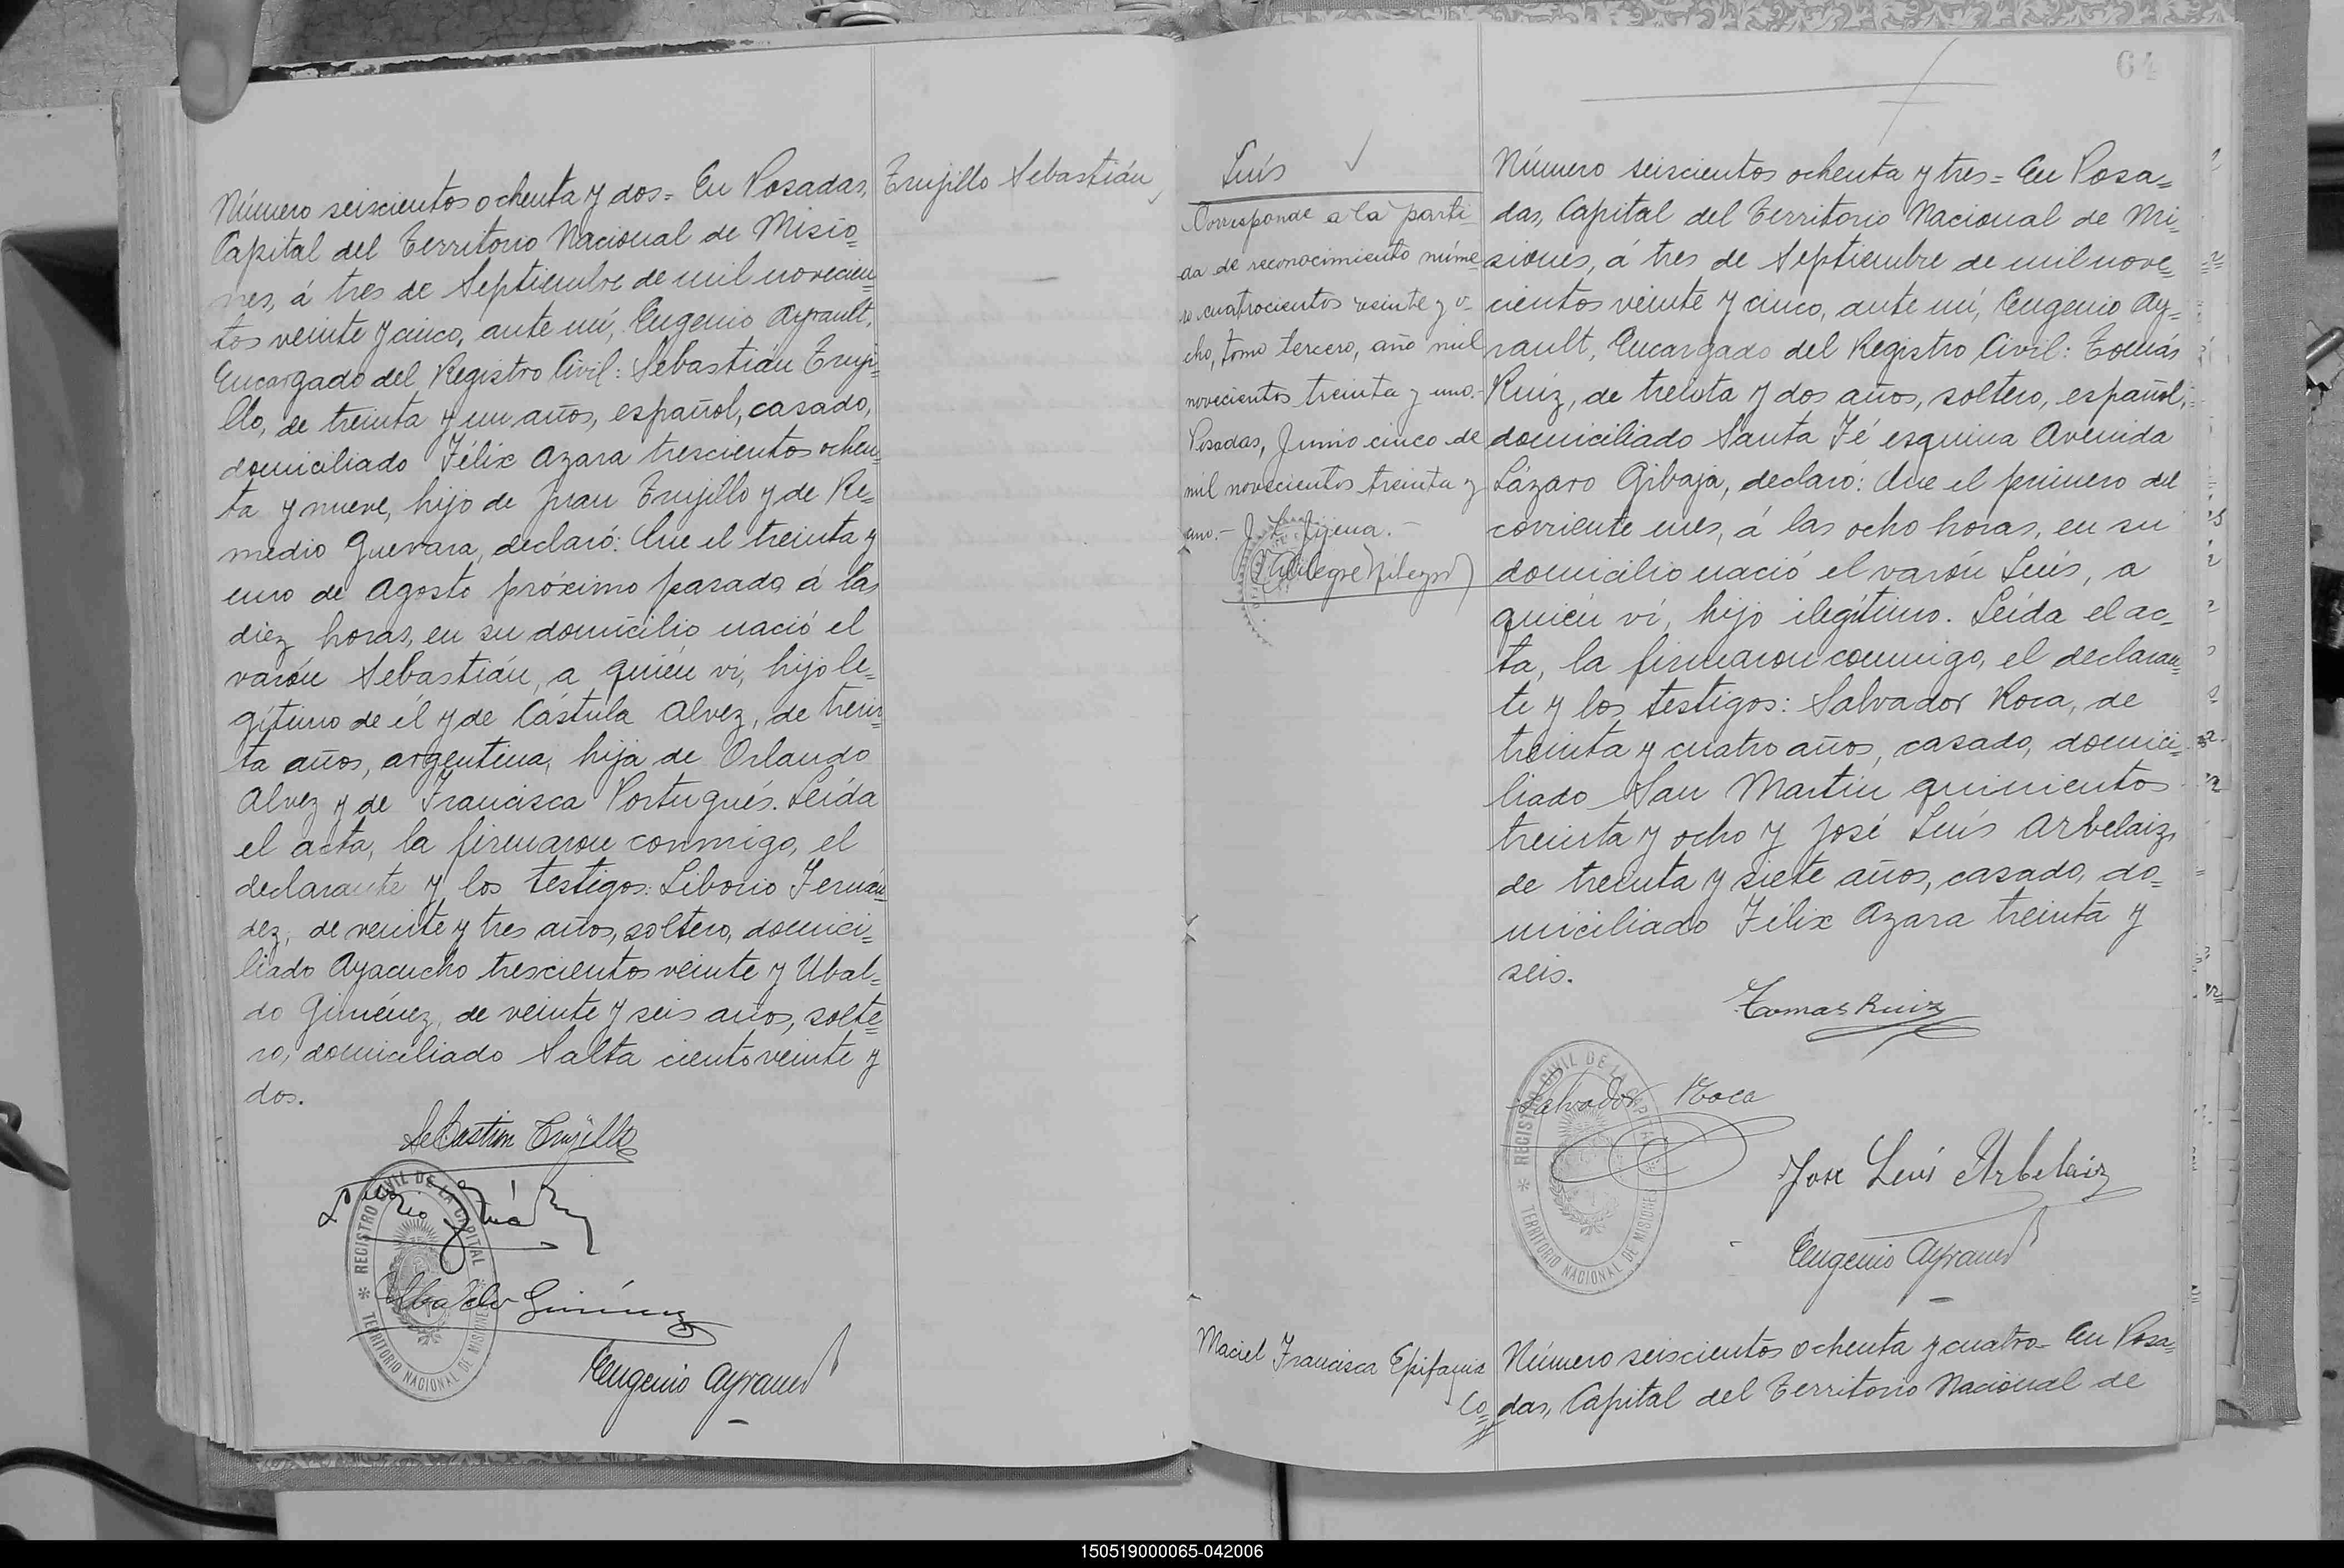 Número seiscientos ochenta y dos= En Posadas,
Capital del Territorio Nacional de Misio=
nes, á tres de Septiembre de mil novecien=
tos veinte y cinco, ante mí, Eugenio Ayrault,
Encargado del Registro Civil: Sebastián Truji=
llo, de treinta y un años, español, casado,
domiciliado Félix Azara trescientos ochen=
ta y nueve, hijo de Juan Trujillo y de Re=
medio Guevara, declaró: Que el treinta y
uno de Agosto próximo pasado, á las
diez horas, en su domicilio nació el
varón Sebastián, a quién ví, hijo le=
gítimo de él y de Cástula Alvez, de trein=
ta años, argentina, hija de Orlando
Alvez y de Francisca Portugués. Leída
el acta, la firmaron conmigo, el
declarante y los testigos: Liborio Fernán=
dez, de veinte y tres años, soltero, domici=
liado Ayacucho trescientos veinte y Ubal=
do Giménez, de veinte y seis años, solte=
ro, domiciliado Salta ciento veinte y
dos.
Sebastian Trujillo
Ubaldo Giménez
Eugenio Ayrault
REGISTRO CIVIL DE LA CAPITAL
TERRITORIO NACIONAL DE MISIONES
Trujillo Sebastián
64
Luís
Corresponde a la parti-
da de reconocimiento núme-
ro cuatrocientos veinte y o-
cho, tomo tercero, año mil
novecientos treinta y uno.-
Posadas, Junio cinco de
mil novecientos treinta y
uno.-
Número seiscientos ochenta y tres= En Posa=
das, Capital del Territorio Nacional de Mi=
siones, á tres de Septiembre de mil nove=
cientos veinte y cinco, ante mí, Eugenio Ay=
rault, Encargado del Registro Civil: Tomás
Ruíz, de treinta y dos años, soltero, español,
domiciliado Santa Fé esquina Avenida
Lázaro Gibaja, declaró: Que el primero del
corriente mes, á las ocho horas, en su
domicilio nació el varón Luís, a
quién ví, hijo ilegítimo. Leída el ac=
ta, la firmaron conmigo, el declaran=
te y los testigos: Salvador Roca, de
treinta y cuatro años, casado, domici=
liado San Martin quinientos
treinta y ocho y José Luís Arbelaiz,
de treinta y siete años, casado, do=
miciliado Félix Azara treinta y
seis.
Tomas Ruiz
Salvador Roca
Jose Luis Arbelaiz
Eugenio Ayrault
REGISTRO CIVIL DE LA CAPITAL
TERRITORIO NACIONAL DE MISIONES
Maciel Francisca Epifania
Co=
Número seiscientos ochenta y cuatro- En Posa=
das, Capital del Territorio Nacional de
150519000065-042006